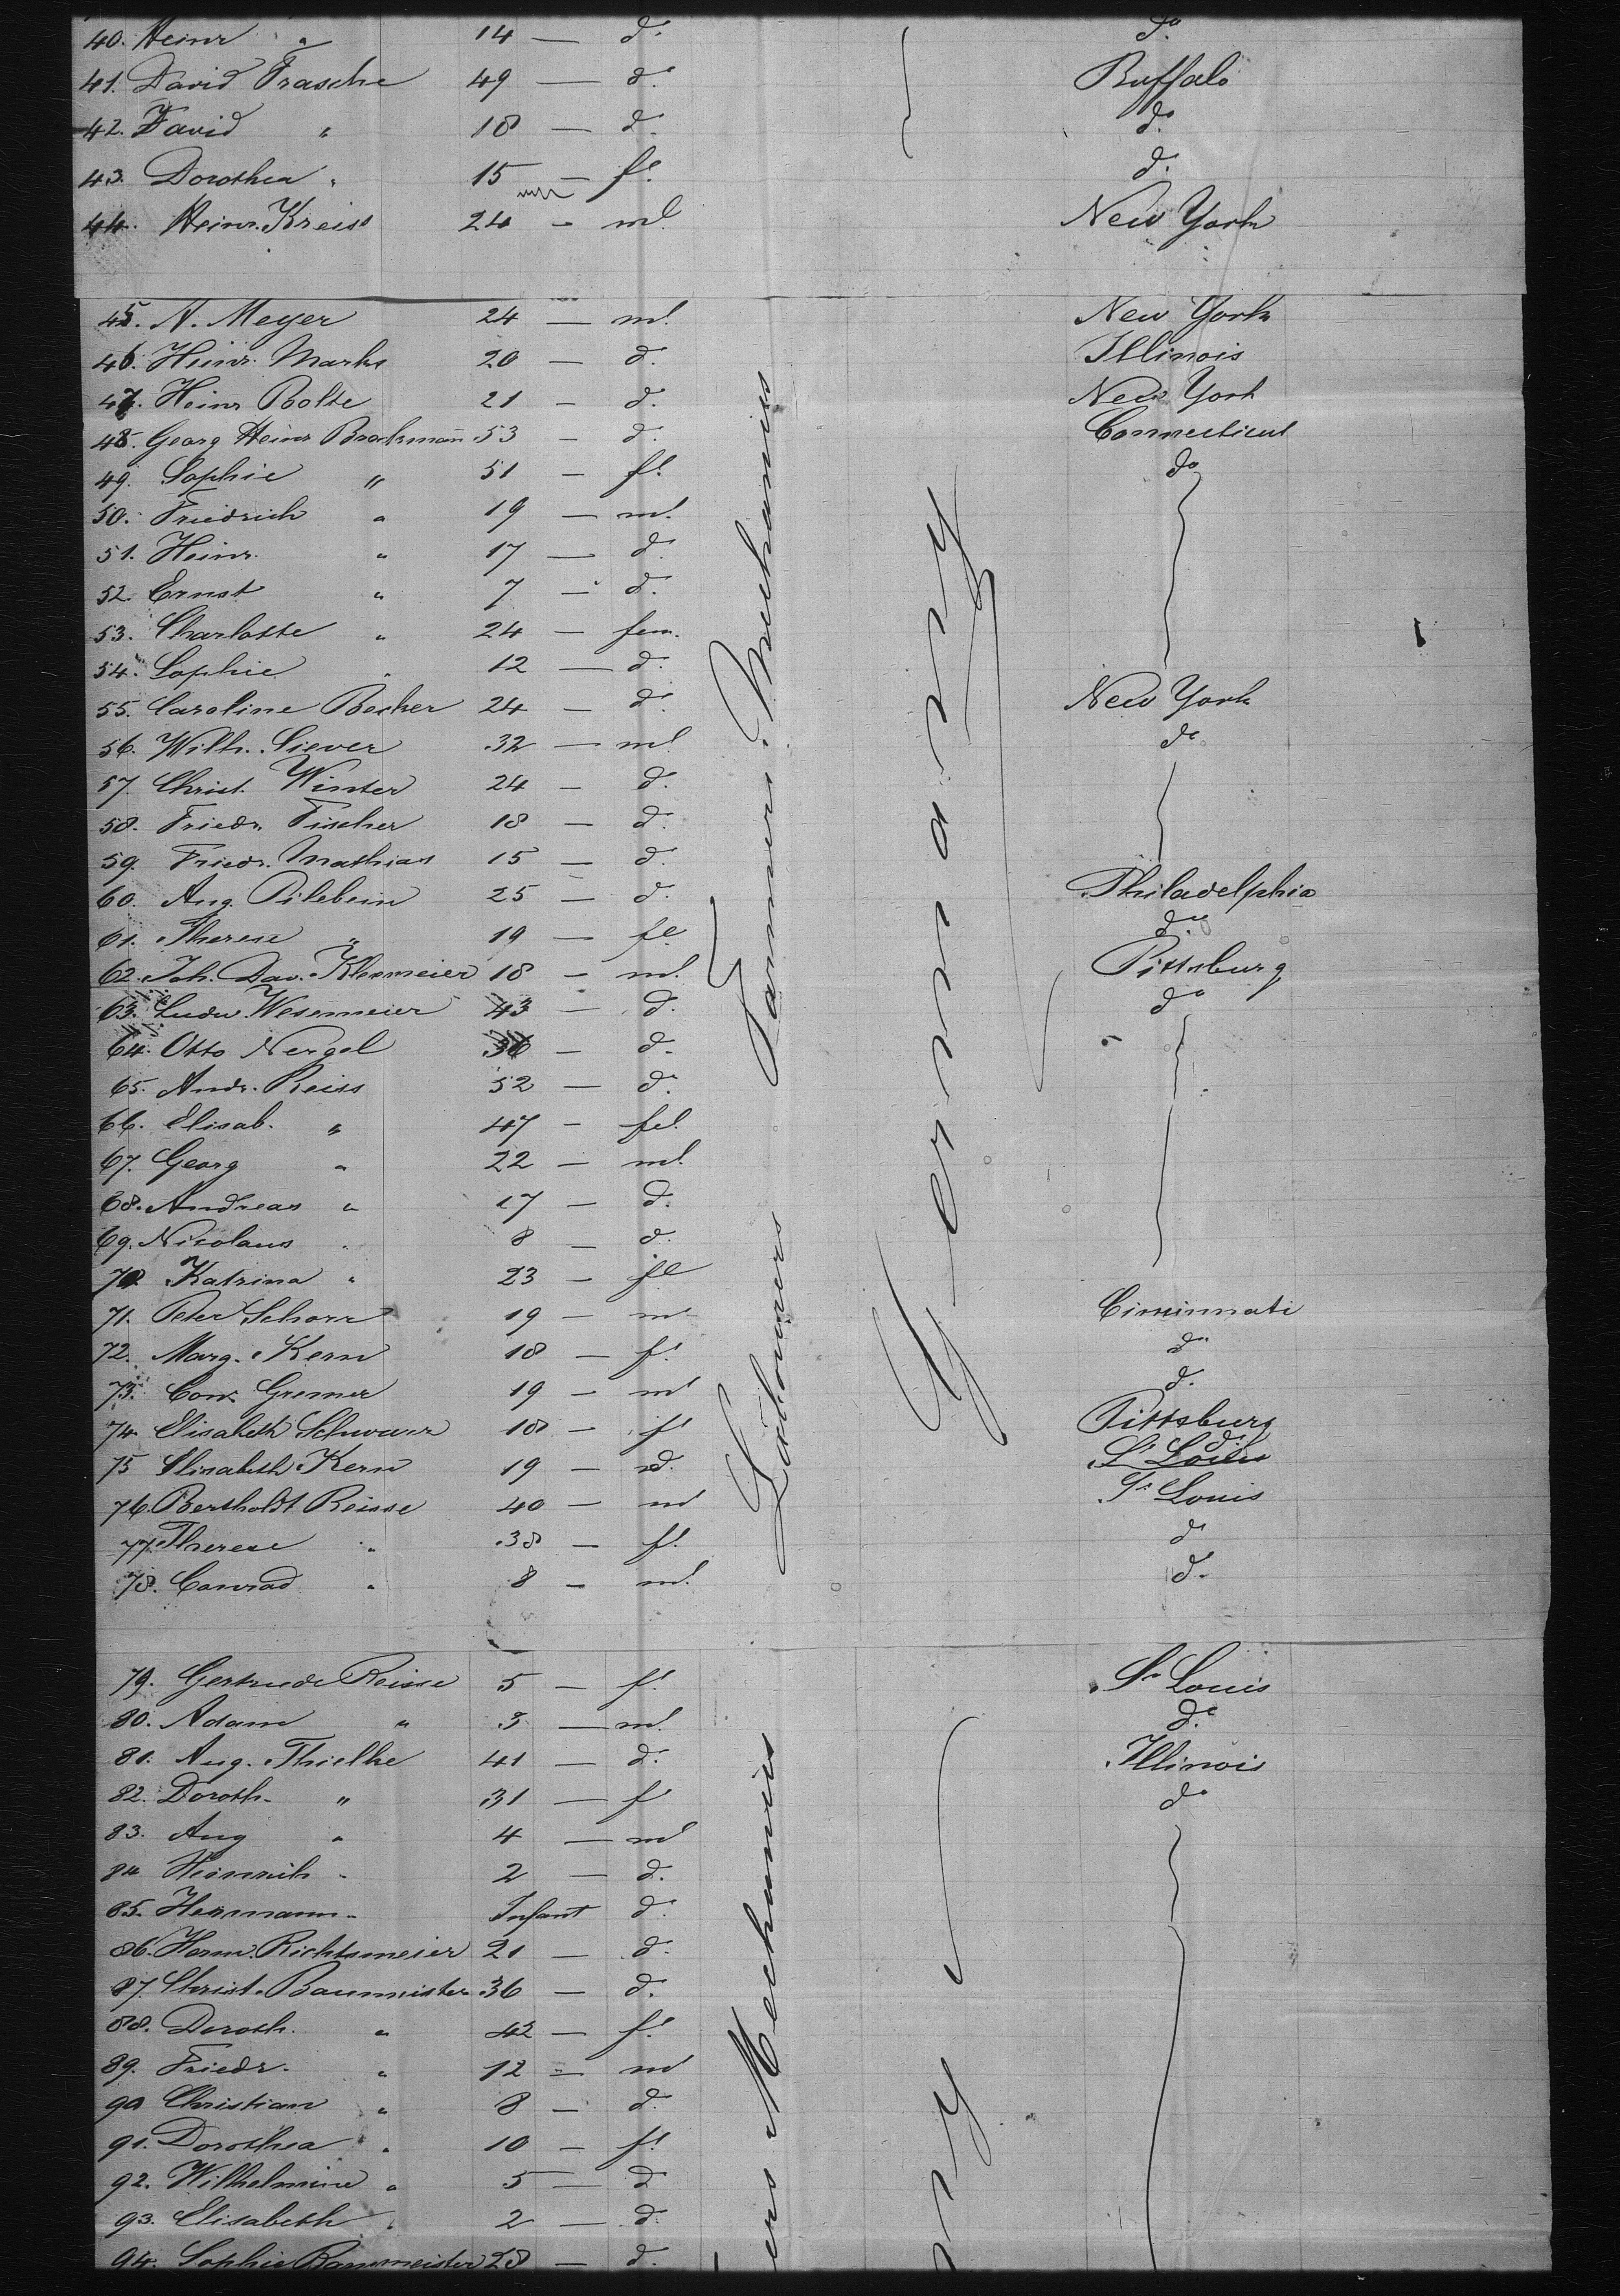 40. Heinr " 14 — do. do.
41. David Frasche 49 — do. Buffalo
42. David " 18 — do. do.
43. Dorothea " 15 — fl. do.
44. Heinr. Kreiss 24 — ml. New York
45. A. Meyer 24 — ml. New York
46. Heinr. Marks 20 — d. Illinois
47. Heinr Bolte 21 — d. New York
48. Georg Heinr Brokmann 53 — d. Connecticut
49. Sophie " 51 — fl. do
50. Friedrich " 19 — ml.
51. Heinr. " 17 — d.
52. Ernst " 7 — d.
53. Charlotte " 24 — fem.
54. Sophie " 12 — d.
55. Caroline Becker 24 — d. New York
56. Wilh. Siever 32 — ml. do
57. Christ. Winter 24 — d.
58. Friedr. Fischer 18 — d.
59. Friedr. Mathias 15 — d.
60. Aug. Pilebein 25 — d. Philadelphia
61. Therese " 19 — fl. do.
62. Joh. Dav. Klosmeier 18 — ml. Pittsburg
63. Ludw. Wesemeier 43 — d. do
64. Otto Nergel 36 — d.
65. Andr. Reiss 52 — d.
66. Elisab. " 47 — fel.
67. Georg " 22 — ml.
68. Andreas " 17 — d.
69. Nicolaus " 8 — d.
70. Katrina " 23 — fl
71. Peter Schorr 19 — m Cimimnati
72. Marg. Kern 18 — fl. do
73. Con. Gremer 19 — ml d.
74. Elisabeth 18 — fl Pittsburg
75 Elisabeth Kern 19 — d. St. Louis do
76. Bertholdt Reisse 40 — ml St. Louis
77. Therese " 38 — fl. do
78. Conrad " 8 — ml. do.
Labourers Farmers Mechanics
Germany
79. Gertrude Reisse 5 — fl. St. Louis
80. Adam " 3 — ml. do.
81. Aug. Thielke 41 — d. Illinois
82. Doroth. " 31 — f do
83. Aug " 4 — ml
84 Heinrich " 2 — d.
85. Hermann " Infant d.
86. Herm. Richtsmeier 21 — d.
87. Christ. Baumeister 36 — d.
88. Doroth. " 42 — fl.
89. Friedr. " 12 — ml
90 Christian " 8 — d.
91. Dorothea " 10 — fl.
92. Wilhelmine " 5 — d
93. Elisabeth " 2 — d.
94. Sophie Baumeister 28 — d.
ers Mechanics
ny